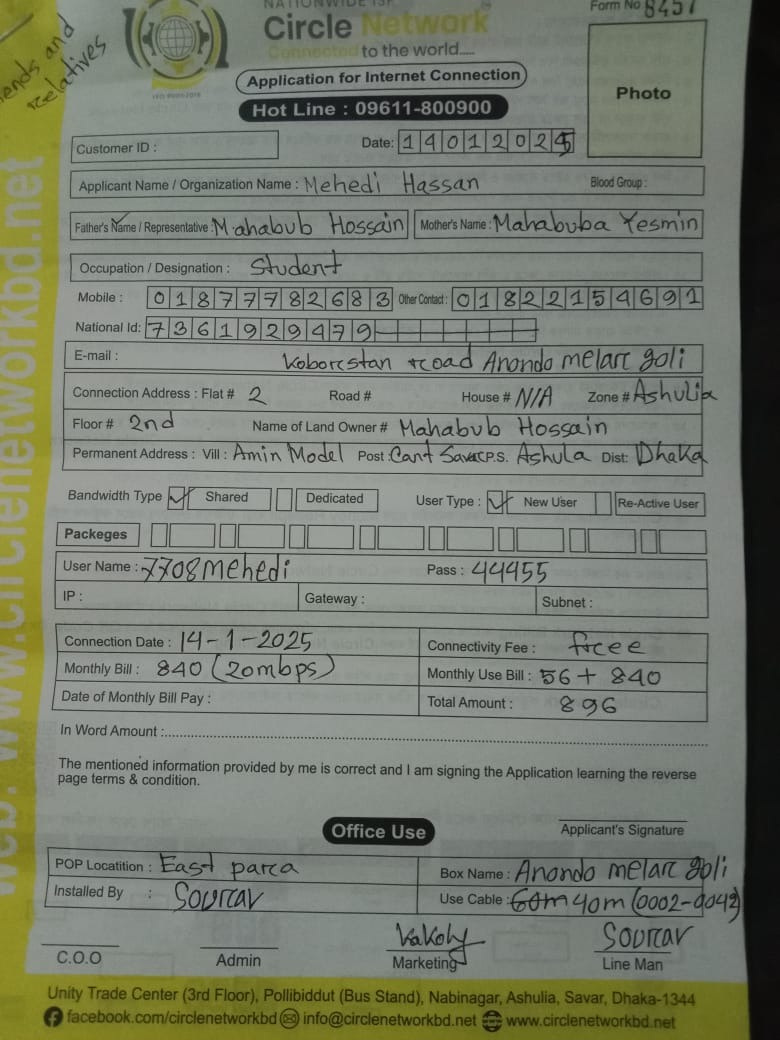 NATIONWIDE ISP
Circle Network
Connected to the world.....
Form No 8457
ends and relatives
Application for Internet Connection
Hot Line : 09611-800900
Photo
Customer ID :
Date: 14012025
Applicant Name / Organization Name : Mehedi Hassan Blood Group :
Father's Name / Representative : Mahabub Hossain Mother's Name : Mahabuba Yesmin
Occupation / Designation : Student
Mobile : 01877782683 Other Contact : 01822154691
National Id: 7361929479
E-mail : Koborstan road Anondo melar goli
Connection Address : Flat # 2 Road # House # N/A Zone # Ashulia
Floor # 2nd Name of Land Owner # Mahabub Hossain
Permanent Address : Vill : Amin Model Post : Cant Savar P.S. Ashula Dist: Dhaka
Bandwidth Type Shared Dedicated User Type : New User Re-Active User
Packeges
User Name : 7708mehedi Pass : 44455
IP : Gateway : Subnet :
Connection Date : 14-1-2025 Connectivity Fee : free
Monthly Bill : 840 (20mbps) Monthly Use Bill : 56 + 840
Date of Monthly Bill Pay : Total Amount : 896
In Word Amount :
The mentioned information provided by me is correct and I am signing the Application learning the reverse
page terms & condition.
Office Use
Applicant's Signature
POP Locatition : East parca Box Name : Anondo melar goli
Installed By : Sourav Use Cable : 60m 40m (0002-0042)
Kakoly Sourav
C.O.O Admin Marketing Line Man
Unity Trade Center (3rd Floor), Pollibiddut (Bus Stand), Nabinagar, Ashulia, Savar, Dhaka-1344
facebook.com/circlenetworkbd info@circlenetworkbd.net www.circlenetworkbd.net
web: www.circlenetworkbd.net